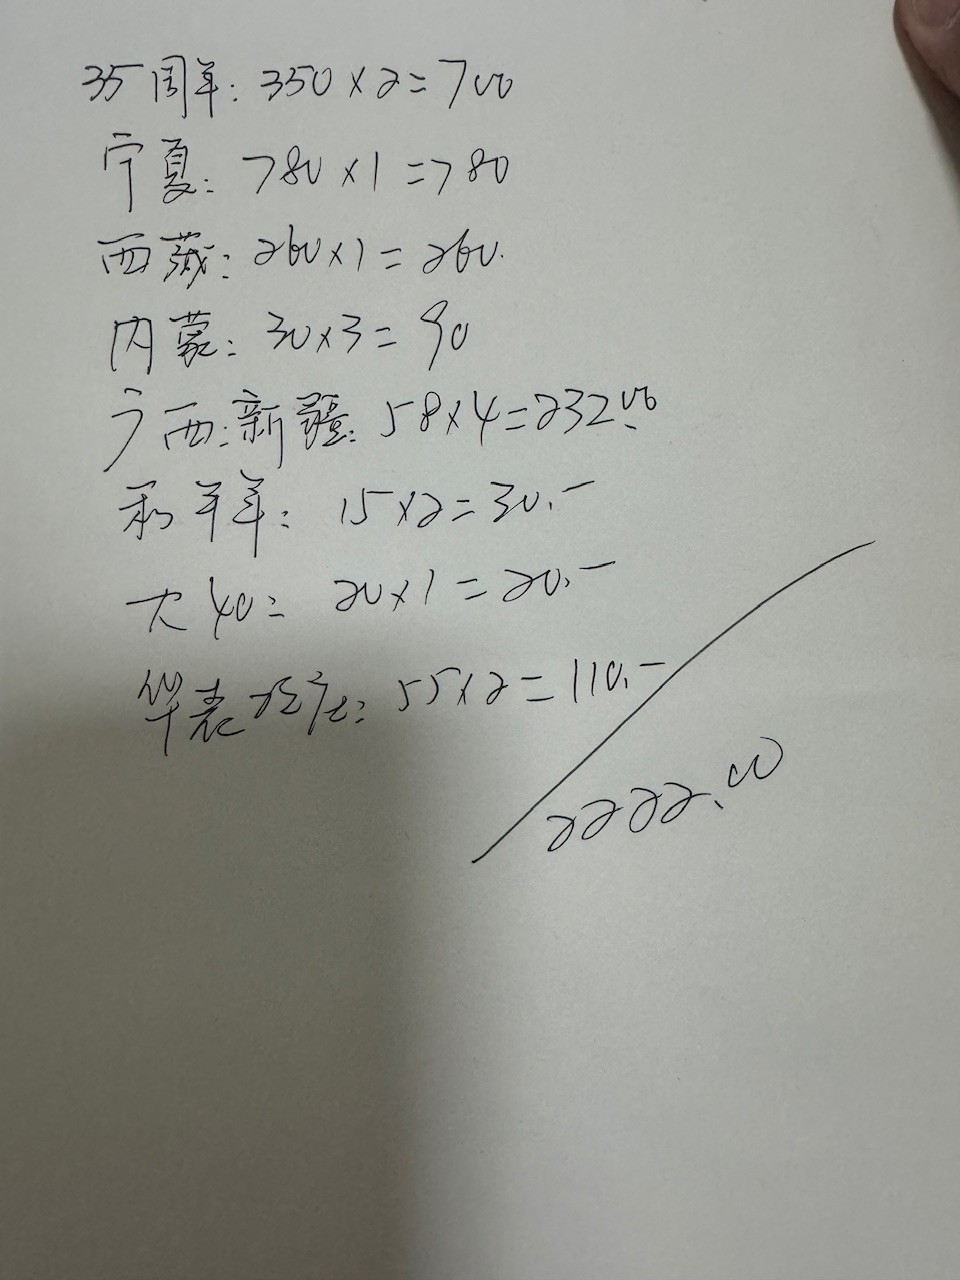 35周年: 350×2=700
宁夏: 780×1=780
西藏: 260×1=260.
内蒙: 30×3=90
广西:新疆: 58×4=232.00
和羊年: 15×2=30.-
大40: 20×1=20.-
华表: 55×2=110.-
2222.00